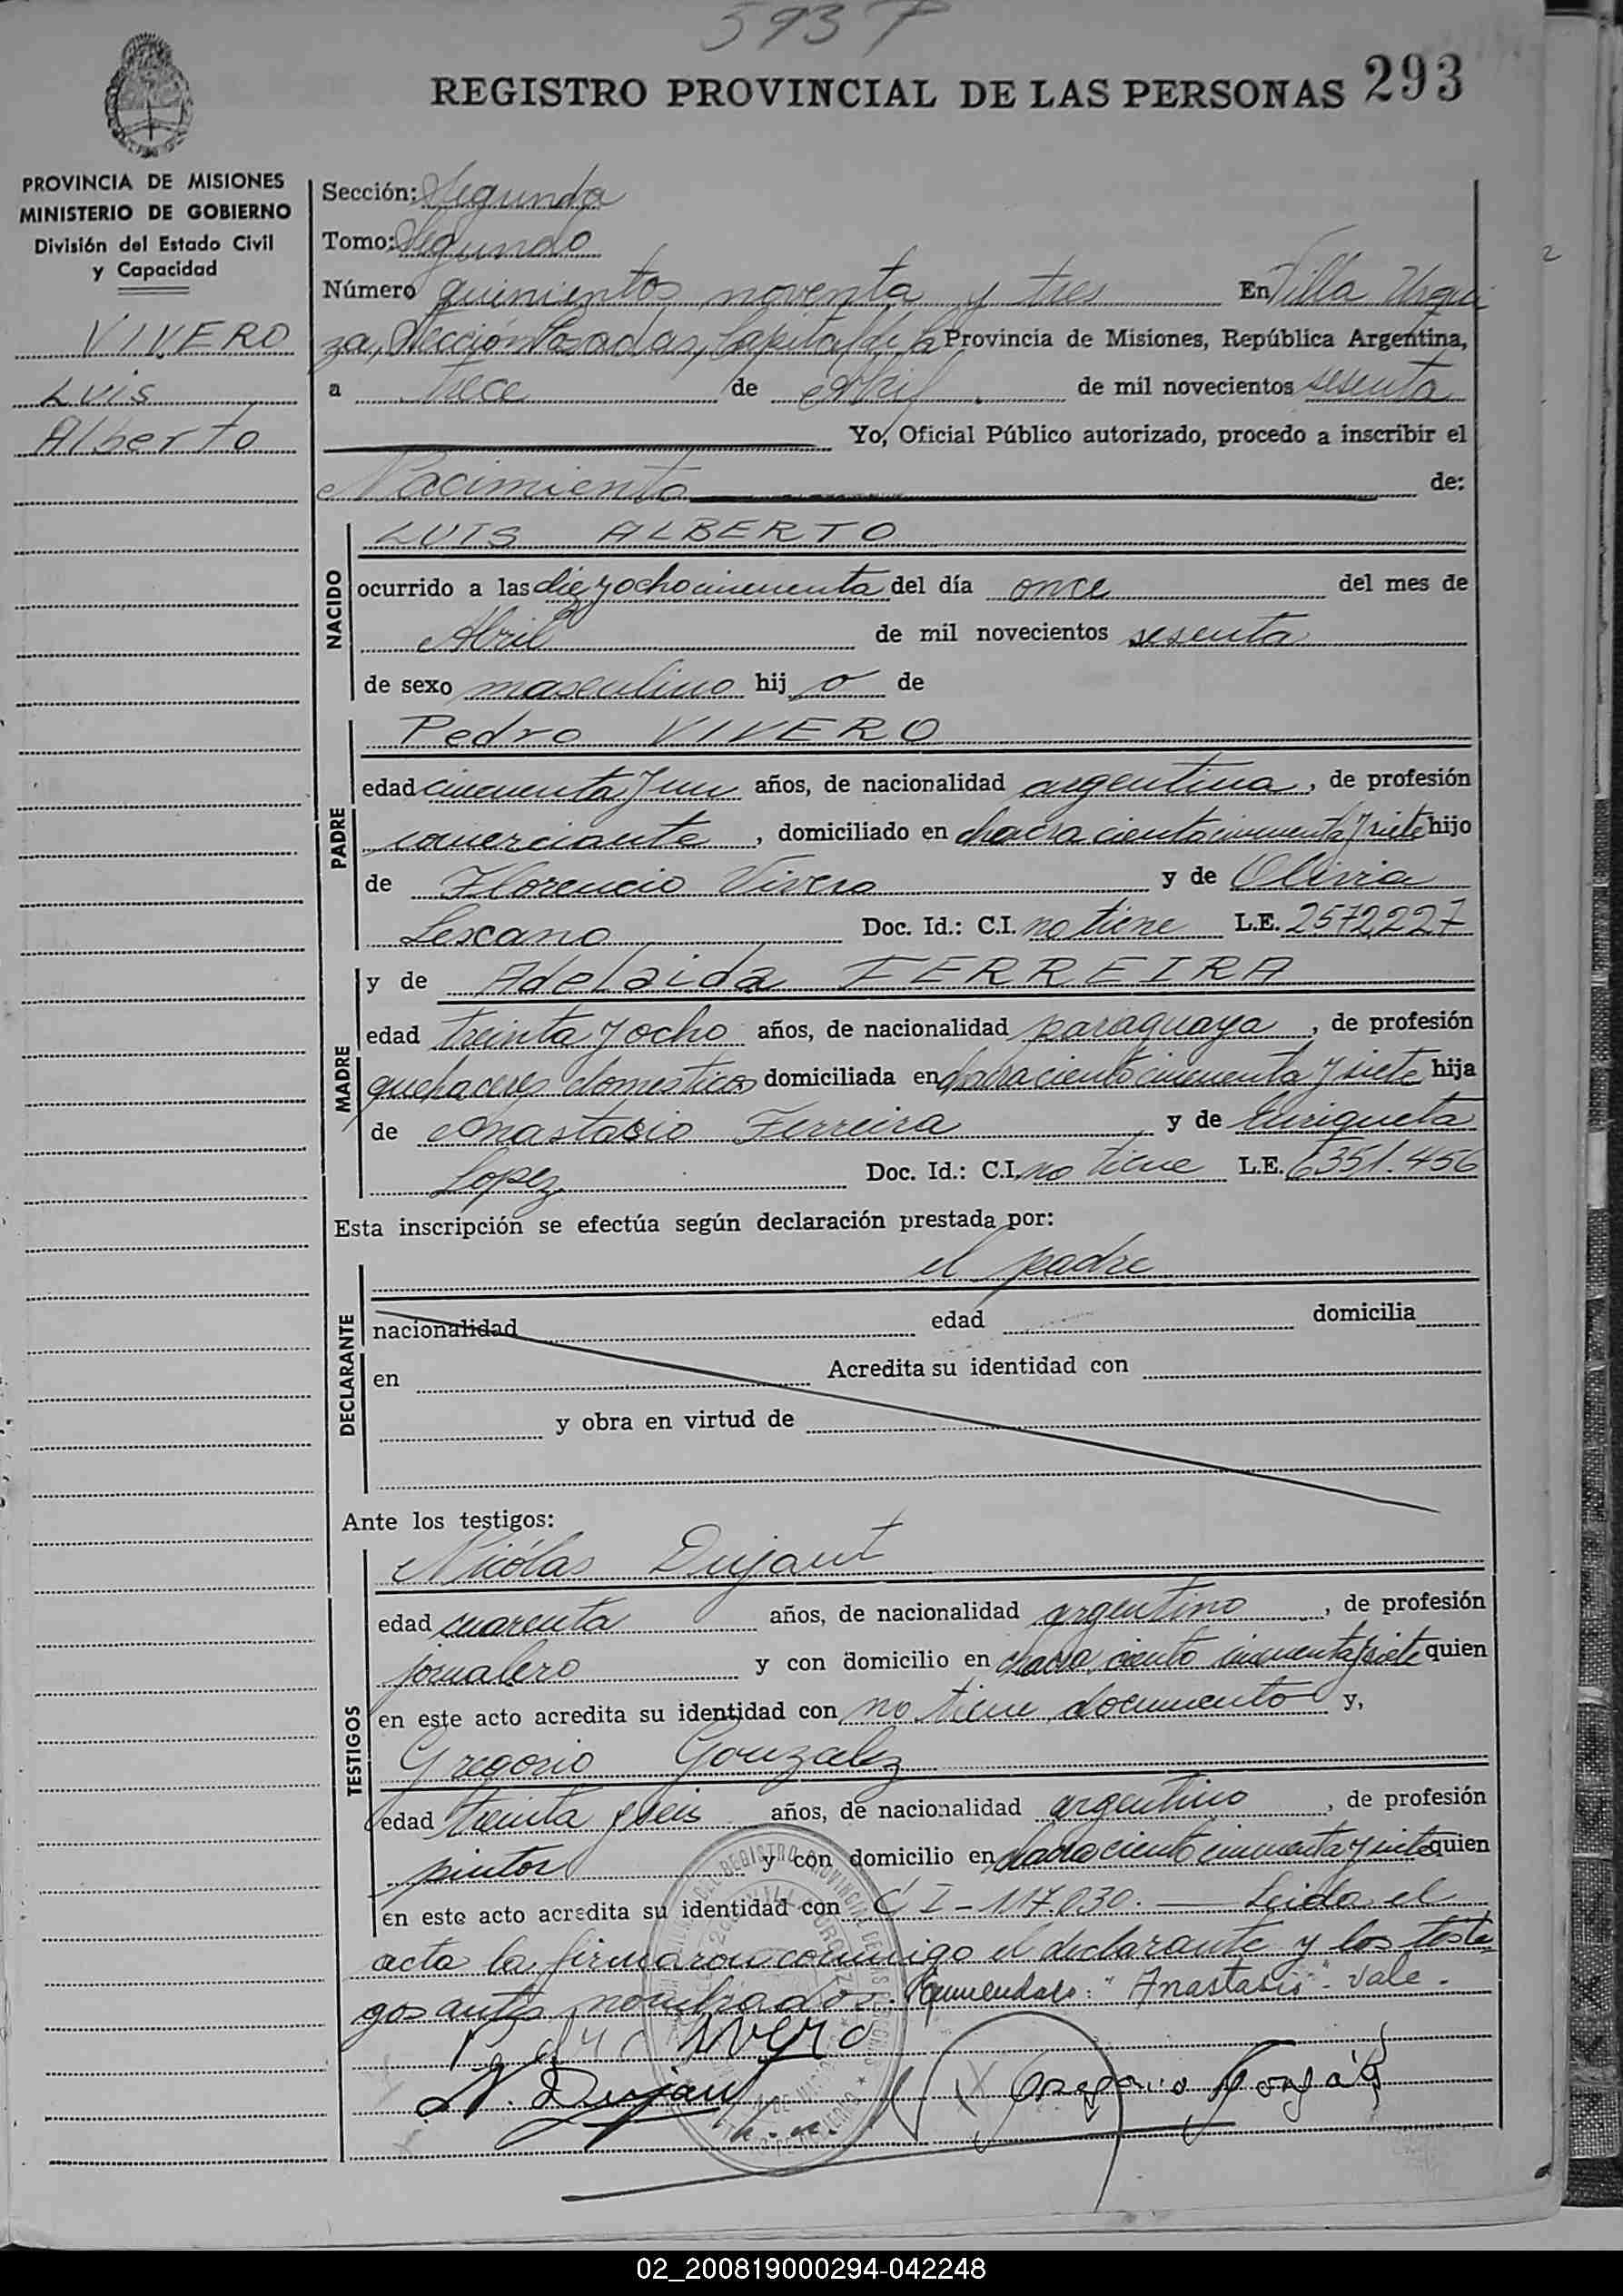 593 P
REGISTRO PROVINCIAL DE LAS PERSONAS 293
PROVINCIA DE MISIONES
MINISTERIO DE GOBIERNO
División del Estado Civil
y Capacidad
VIVERO
Luis
Alberto
Sección: Segunda
Tomo: Segundo
Número quinientos noventa y tres En Villa Urqui
za, Sección Posadas, Capital de la Provincia de Misiones, República Argentina,
a trece de Abril de mil novecientos sesenta
Yo, Oficial Público autorizado, procedo a inscribir el
Nacimiento de:
NACIDO
LUIS ALBERTO
ocurrido a las diez y ocho cincuenta del día once del mes de
Abril de mil novecientos sesenta
de sexo masculino hij o de
PADRE
Pedro VIVERO
edad cincuenta y un años, de nacionalidad argentina, de profesión
comerciante, domiciliado en chacra ciento cincuenta y siete hijo
de Florencio Vivero y de Olivia
Lescano Doc. Id.: C.I. no tiene L.E. 2572,227
MADRE
y de Adelaida FERREIRA
edad treinta y ocho años, de nacionalidad paraguaya, de profesión
quehaceres domesticos domiciliada en chacra ciento cincuenta y siete hija
de Anastacio Ferreira y de Enriqueta
Lopez Doc. Id.: C.I. no tiene L.E. 6351.456
Esta inscripción se efectúa según declaración prestada por:
DECLARANTE
el padre
nacionalidad edad domicilia
en Acredita su identidad con
y obra en virtud de
Ante los testigos:
TESTIGOS
Nicólas Dujaut
edad cuarenta años, de nacionalidad argentino, de profesión
jornalero y con domicilio en chacra ciento cincuenta y siete quien
en este acto acredita su identidad con no tiene documento y,
Gregorio Gonzalez
edad treinta y seis años, de nacionalidad argentino, de profesión
pintor y con domicilio en chacra ciento cincuenta y siete quien
en este acto acredita su identidad con C I - 117.030. — Leida el
acta la firmaron conmigo el declarante y los testi
gos antes nombrados. Enmendado: "Anastasio" - Vale.
Pedro Vivero
N. Dujaut
Gregorio Gonzáles
02_200819000294-042248